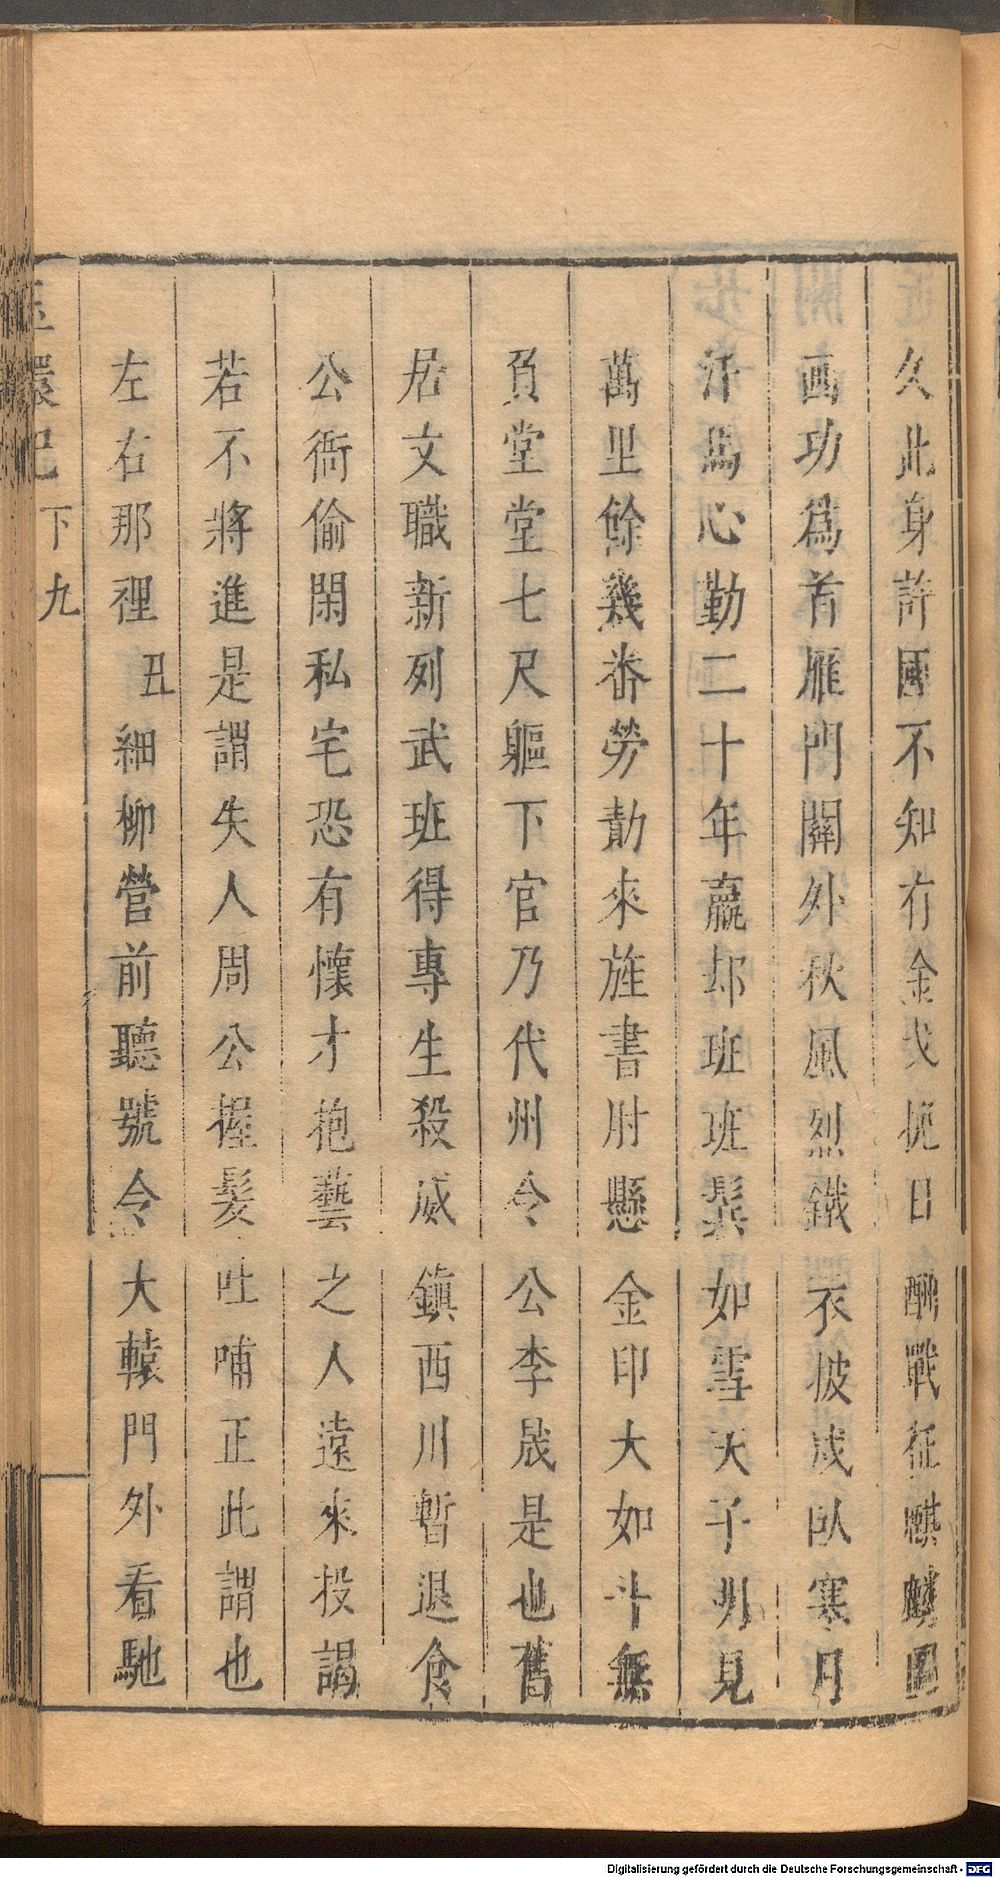 久此身許國不知有金戈挽日酬戰征麒麟圖
画功爲首雁門關外秋風烈鐵衣披戍臥寒月
汗馬心勤二十年贏却班班鬂如雪天子明見
萬里餘幾番勞勣來旌書肘懸金印大如斗無
負堂堂七尺軀下官乃代州令公李晟是也舊
居文職新列武班得專生殺威鎮西川暫退食
公衙偷閑私宅恐有懷才抱藝之人遠來投謁
若不將進是謂失人周公握髮吐哺正此謂也
左右那裡 丑 細柳營前聽號令大轅門外看馳
玉環記 下 九
Digitalisierung gefördert durch die Deutsche Forschungsgemeinschaft - DFG